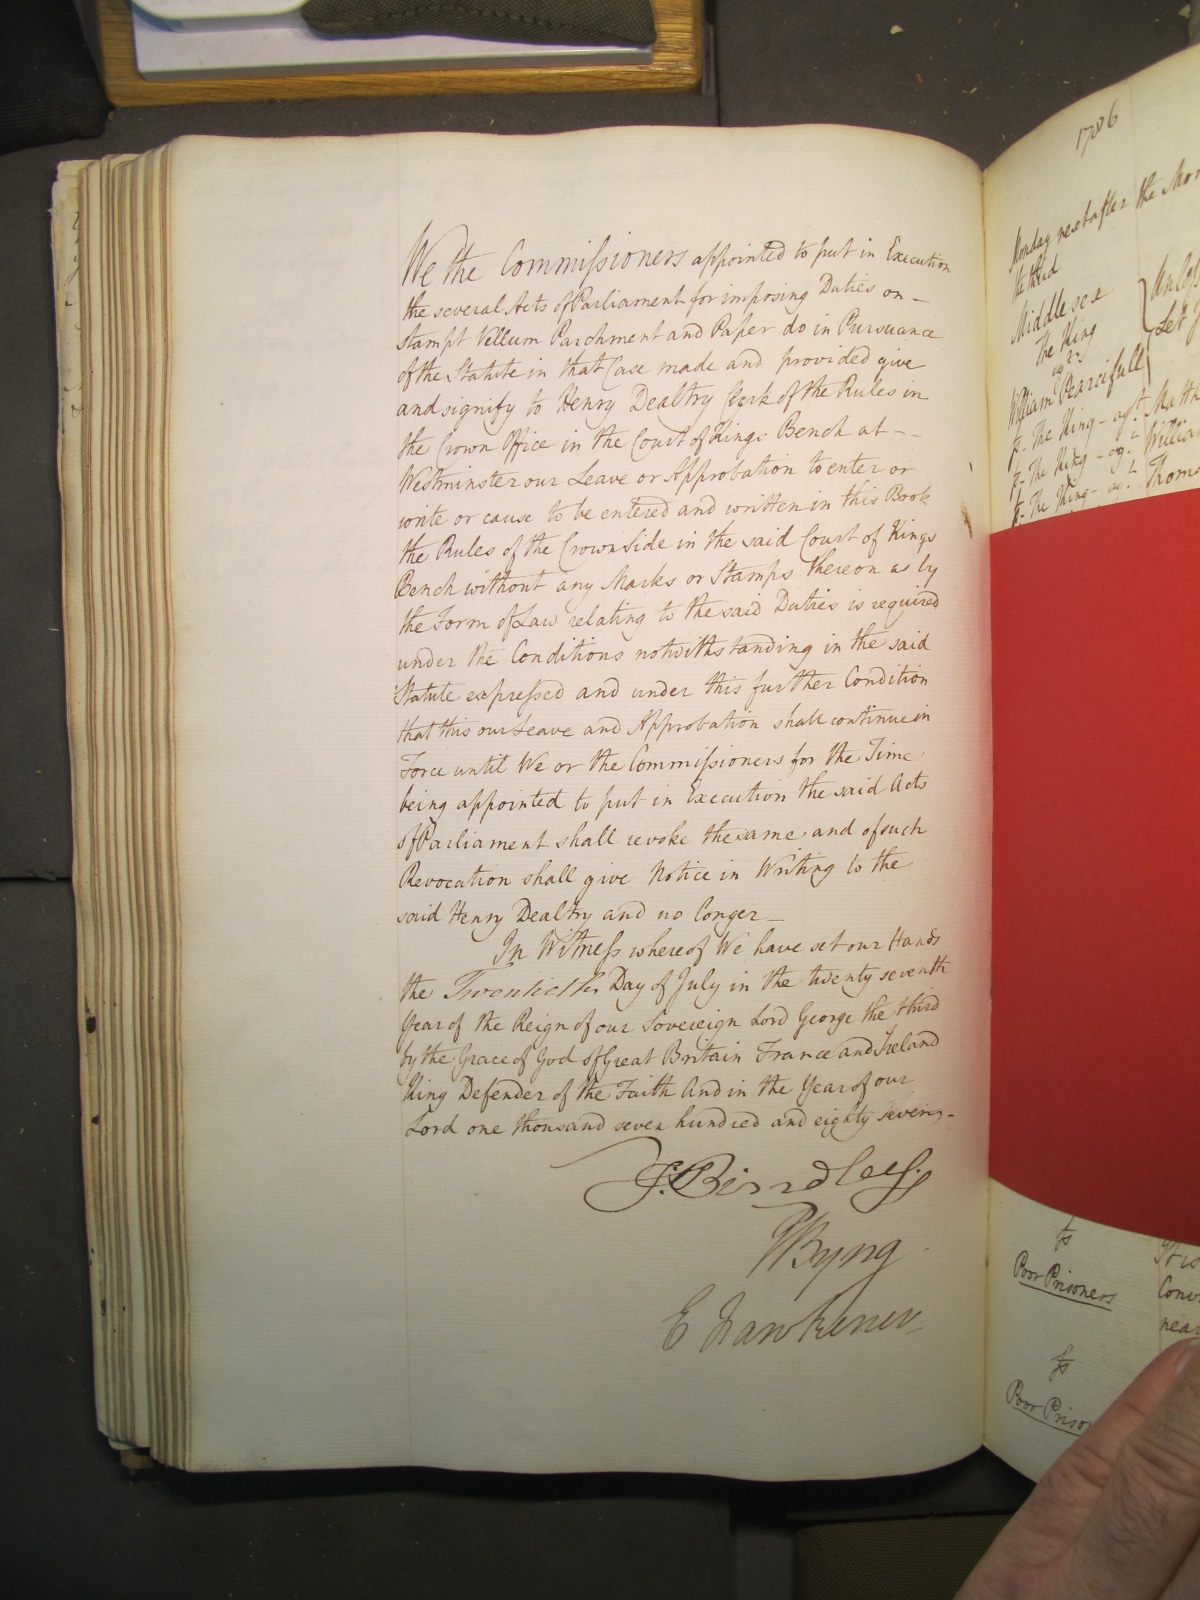 We the Commissioners appointed to put in Execution
the several Acts of Parliament for imposing Duties on -
stampt Vellum Parchment and Paper do in Pursuance
of the Statute in that Case made and provided give
and signify to Henry Dealtry Clerk of the Rules in
the Crown Office in the Court of Kings Bench at - -
Westminster our Leave or Approbation to enter or
write or cause to be entered and written in this Book
the Rules of the Crown Side in the said Court of Kings
Bench without any Marks or Stamps thereon as by
the Form of Law relating to the said Duties is required
under the Conditions notwithstanding in the said
Statute expressed and under this further Condition
that this our Leave and Approbation shall continue in
Force until We or the Commissioners for the Time
being appointed to put in Execution the said Acts
of Parliament shall revoke the same and of such
Revocation shall give Notice in Writing to the
said Henry Dealtry and no longer -
In Witness whereof We have set our Hands
the Twentieth Day of July in the twenty seventh
Year of the Reign of our Sovereign Lord George the third
by the Grace of God of Great Britain France and Ireland
King Defender of the Faith And in the Year of our
Lord one thousand seven hundred and eighty seven -
J. Bindley.
P Byng
E Fawkener
1786
Monday next after the
the third
Middlesex
The King
agt.
William Pearcifull
Unless
Let
fs - The King - agt.
fs - The King - agt. William
fs - The King - agt. Thomas
fs
Poor Prisoners
It is
near
fs
Poor